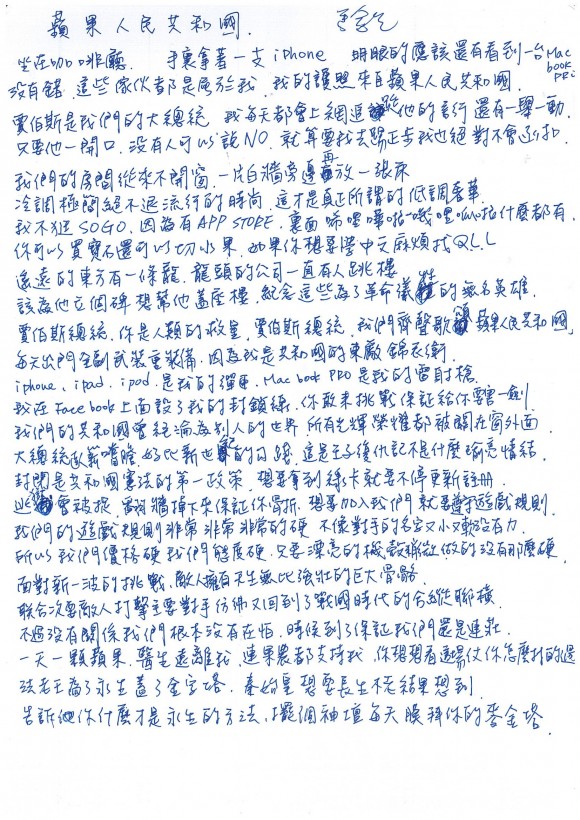 蘋果人民共和國.
坐在咖啡廳 手裏拿著一支 iPhone 明眼的應該還有看到一台 Mac book PRO
沒有錯 這些傢伙都是屬於我 我的護照來自蘋果人民共和國
賈伯斯是我們的大總統 我每天都會上網追蹤他的言行 還有一舉一動
只要他一開口 沒有人可以說NO 就算要我去踢正步我也絕對不會
我們的房間從來不開窗 一片白牆旁邊再放一張床
冷調極簡絕不退流行的時尚 這才是真正所謂的低調奢華
我不逛 SOGO 因為有 APP STORE 裏面唏哩嘩啦嘰哩呱啦什麼都有
你可以買寶石還可以切水果 如果你想要學中文麻煩找QLL
遙遠的東方有一條龍 龍頭的公司一直有人跳樓
該為他立個碑 想幫他蓋座樓 紀念這些為了革命犧牲的無名英雄
賈伯斯總統 你是人類的救星 賈伯斯總統 我們齊聲歌頌 蘋果人民共和國
每天出門全副武裝重裝備 因為我是共和國的東廠錦衣衛
iphone、ipad、ipod 是我的彈匣 Mac book PRO 是我的雷射槍
我在 Facebook 上面設了我的封鎖線 你敢來挑戰保證給你
我們的共和國曾經淪為別人的世界 所有光輝榮耀都被關在窗外面
大總統臥薪嚐膽 好比新世紀的勾踐 這是王子復仇記不是什麼瑜亮情結
封閉是共和國憲法的第一政策 想要拿到綠卡就要不停更新註冊
逃獄會被捉 翻牆掉下來保證你骨折 想要加入我們就要遵守遊戲規則
我們的遊戲規則非常非常非常的硬 不像對手的名字又小又軟沒有力
所以我們價格硬我們態度硬 只要漂亮的機殼 做的沒有那麼硬
面對新一波的挑戰 敵人擁有天生無比強壯的巨大骨骼
聯合次要敵人打擊主要對手 彷彿又回到了戰國時代的合縱聯橫
不過沒有關係我們根本沒有在怕 時候到了保證我們還是連莊
一天一顆蘋果 醫生遠離我 連果農都支持我 你想想看這場仗你怎麼打的過
法老王為了永生蓋了金字塔 秦始皇想要長生不老結果想到
告訴你什麼才是永生的方法 擺個神壇每天膜拜你的麥金塔